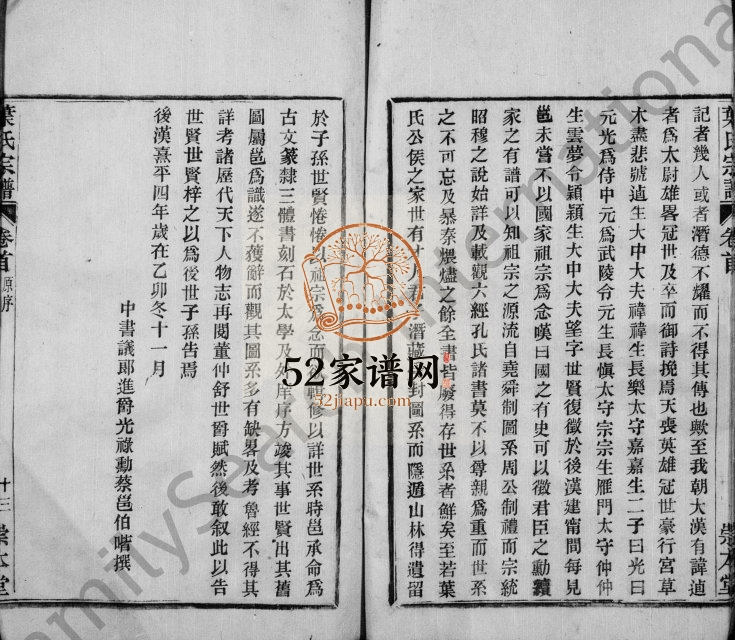 葉氏宗譜 卷首 崇本堂
記者幾人或者潛德不耀而不得其傳也歟至我朝大漢有諱逌
者爲太尉雄畧冠世及卒而御詩挽焉天喪英雄冠世豪行宮草
木盡悲號逌生大中大夫禕禕生長樂太守嘉嘉生二子曰光曰
元光爲侍中元爲武陵令元生長愼太守宗宗生雁門太守仲仲
生雲夢令穎穎生大中大夫望字世賢復徵於後漢建甯間每見
邕未嘗不以國家祖宗爲念嘆曰國之有史可以徵君臣之勳績
家之有譜可以知祖宗之源流自堯舜制圖系周公制禮而宗統
昭穆之說始詳及載觀六經孔氏諸書莫不以尊親爲重而世系
之不可忘及暴秦煨燼之餘全書皆廢得存世系者鮮矣至若葉
氏公侯之家世有 潛藏 封圖系而隱遁山林得遺留
於子孫世賢惓惓以祖宗爲念而 輯修以詳世系時邕承命爲
古文篆隸三體書刻石於太學及外庠序方竣其事世賢出其舊
圖屬邕爲識遂不獲辭而觀其圖系多有缺畧及考魯經不得其
詳考諸歷代天下人物志再閱董仲舒世爵賦然後敢叙此以告
世賢世賢梓之以爲後世子孫告焉
後漢熹平四年歲在乙卯冬十一月
中書議郎進爵光祿勳蔡邕伯喈撰
葉氏宗譜 卷首 原序 十三 崇本堂
52家谱网
52jiapu.com
FamilySearch International